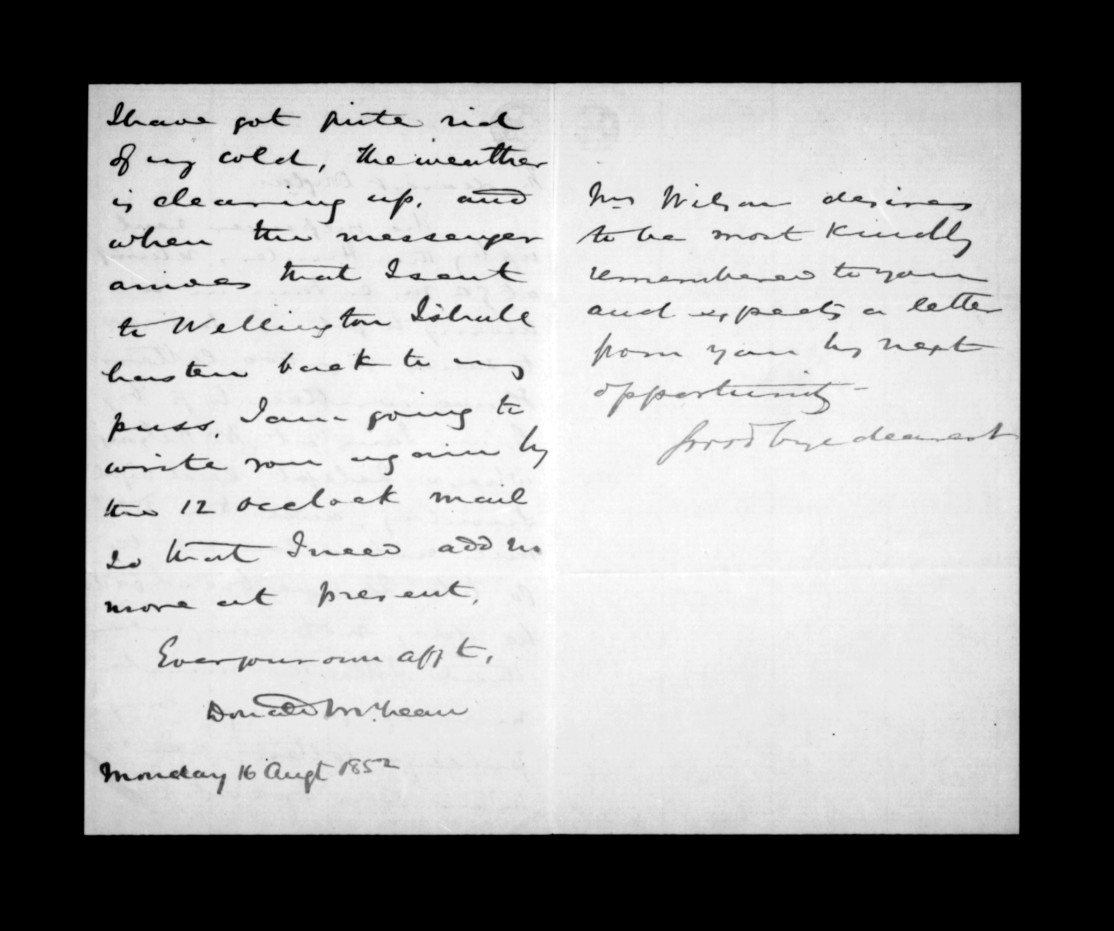 I have got quite rid
of my cold, the weather
is clearing up, and
when the messenger
arrives that I sent
to Wellington I shall
hasten back to my
puss, I am going to
write you again by
the 12 occlock mail
so that I need add no
more at present,
Ever your own afft,
Donald McLean
Monday 16 Augt 1852
Mrs Wilson desires
to be most kindly
remembered to you
and expects a letter
from you by next
opportunity -
Good bye dearest